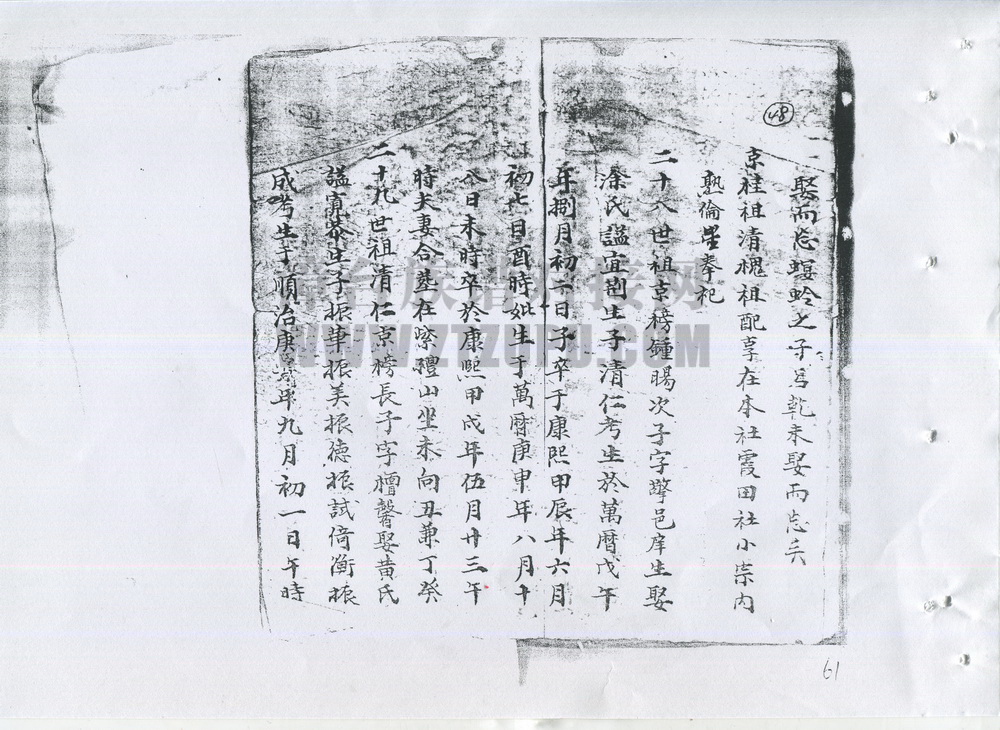 48
娶而忘螟蛉之子名乾未娶而忘矣
京桂祖清槐祖配享在本社霞田社小宗内
熟倫墨奉祀
二十八世祖京榜鍾賜次子字擎邑庠生娶
涂氏謚宜荆生子清仁考生於萬曆戊午
年捌月初六日子卒于康熙甲辰年六月
初七日酉時妣生于萬曆庚申年八月十
八日未時卒於康熙甲戌年伍月廿三午
時夫妻合墓在紫禮山坐未向丑兼丁癸
二十九世祖清仁京榜長子字檀馨娶黄氏
謚寡慈生子振華振美振德振試倚衡振
成考生于順治庚年九月初一日午時
漳台族谱对接网
WWW.ZTZUPU.COM
61